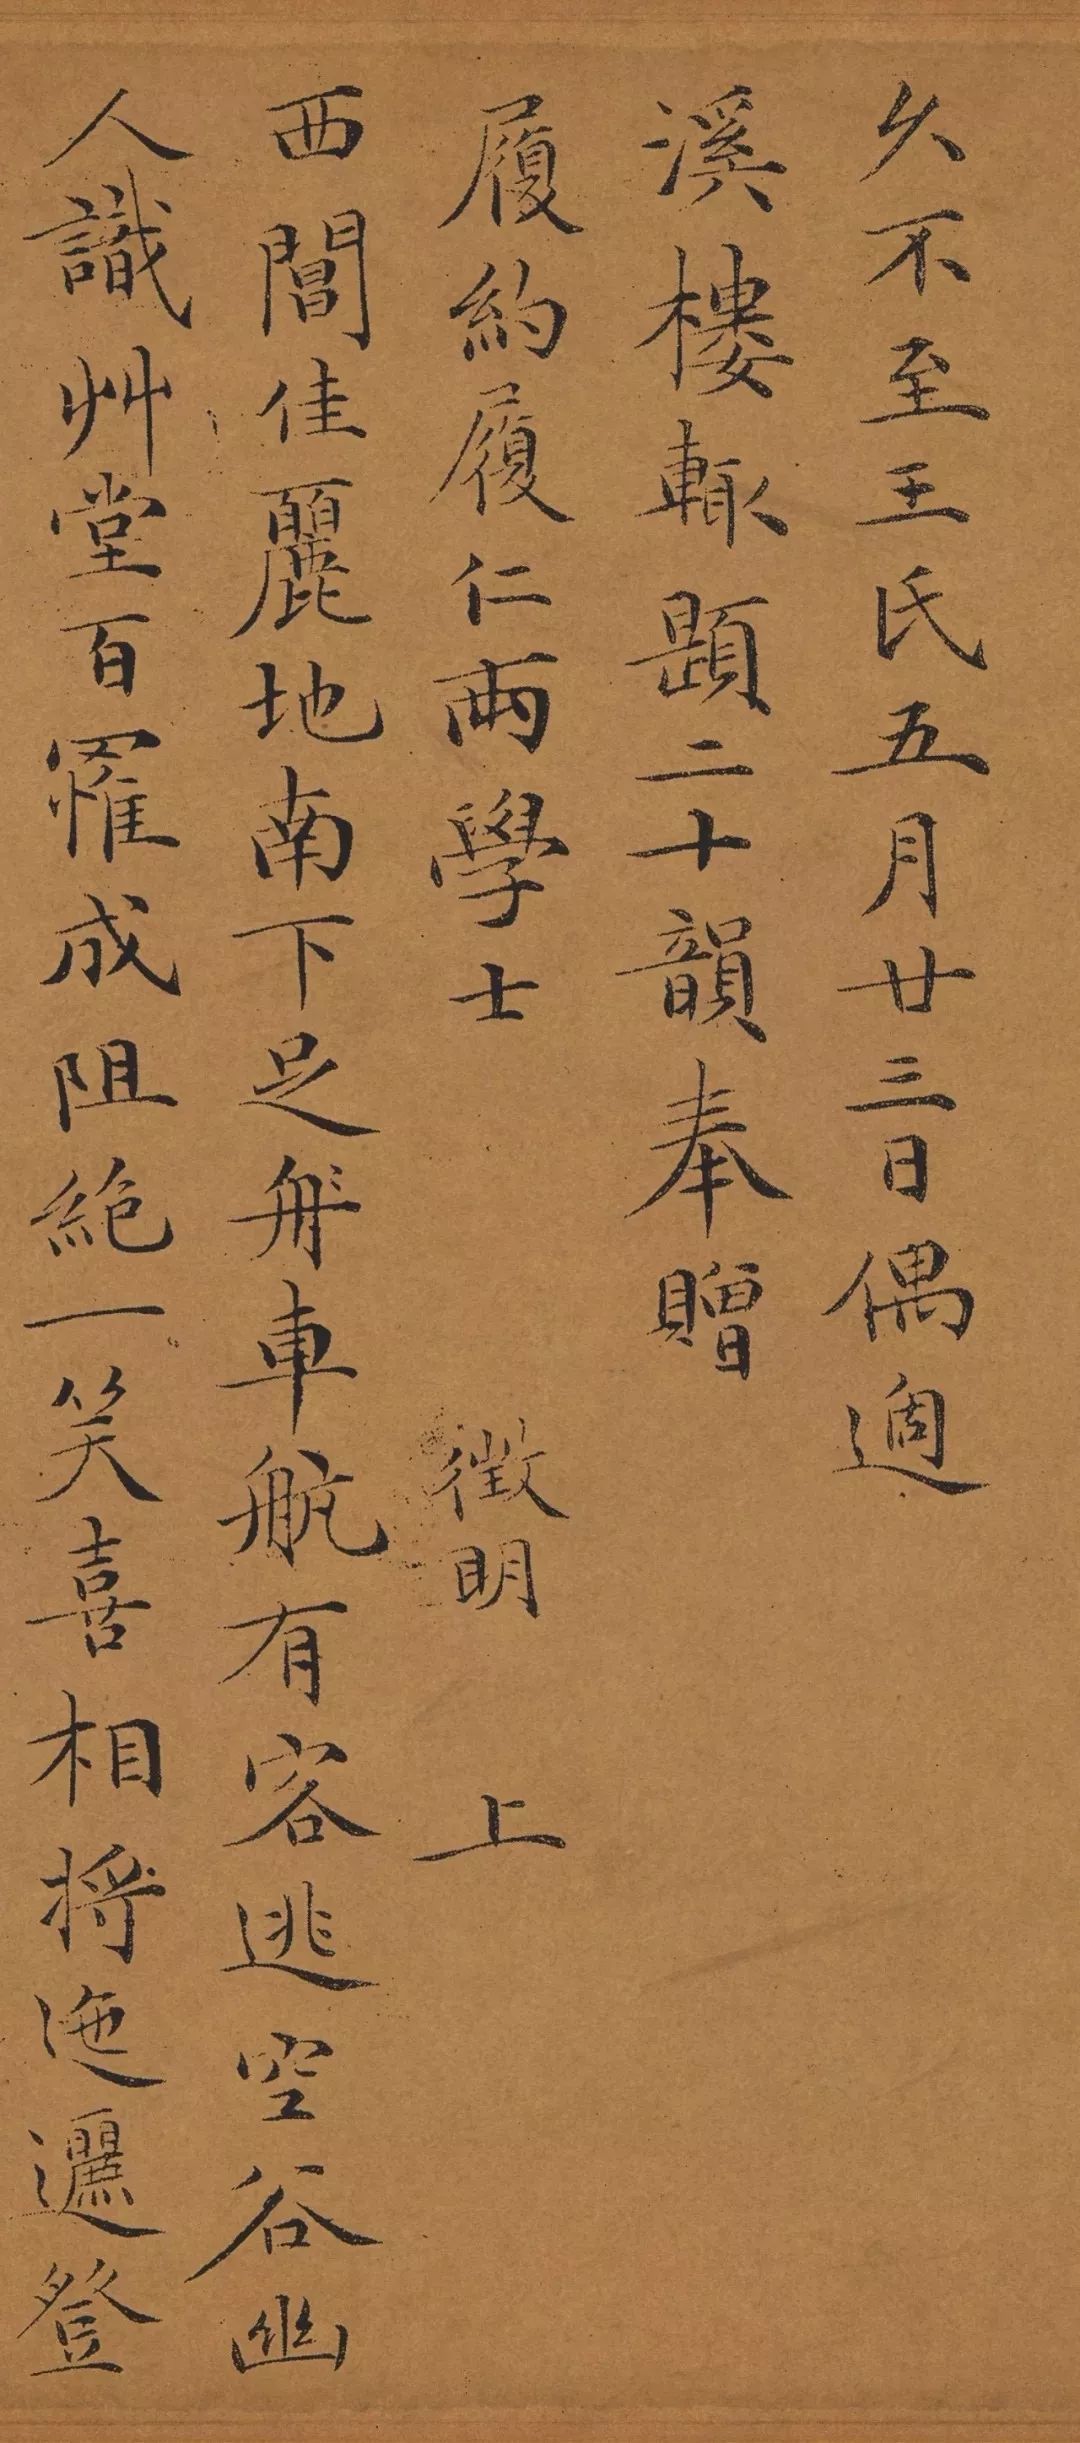 久不至王氏五月廿三日偶過
溪樓輒題二十韻奉贈
履約履仁兩學士 徵明 上
西閶佳麗地南下足舟車航有客逃空谷幽
人識艸堂百罹成阻絕一笑喜相將迤邐登